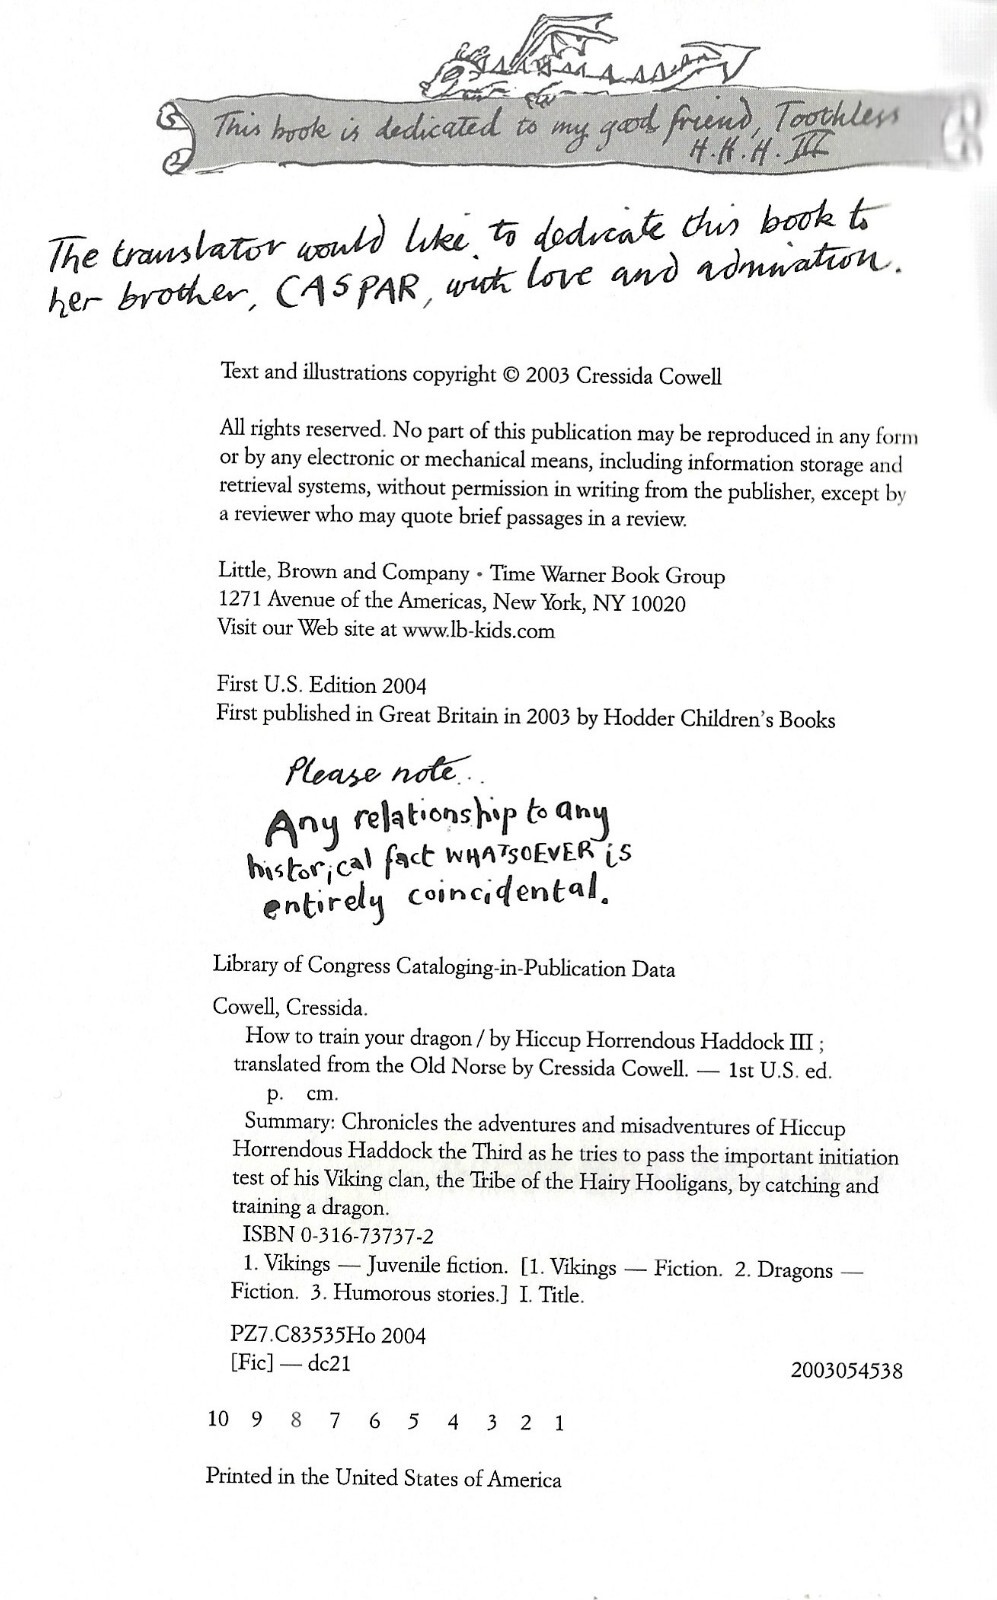 This book is dedicated to my good friend, Toothless
H.H.H. III
The translator would like to dedicate this book to
her brother, CASPAR, with love and admiration.
Text and illustrations copyright © 2003 Cressida Cowell
All rights reserved. No part of this publication may be reproduced in any form
or by any electronic or mechanical means, including information storage and
retrieval systems, without permission in writing from the publisher, except by
a reviewer who may quote brief passages in a review.
Little, Brown and Company • Time Warner Book Group
1271 Avenue of the Americas, New York, NY 10020
Visit our Web site at www.lb-kids.com
First U.S. Edition 2004
First published in Great Britain in 2003 by Hodder Children's Books
Please note...
Any relationship to any
historical fact WHATSOEVER is
entirely coincidental.
Library of Congress Cataloging-in-Publication Data
Cowell, Cressida.
How to train your dragon / by Hiccup Horrendous Haddock III ;
translated from the Old Norse by Cressida Cowell. — 1st U.S. ed.
p. cm.
Summary: Chronicles the adventures and misadventures of Hiccup
Horrendous Haddock the Third as he tries to pass the important initiation
test of his Viking clan, the Tribe of the Hairy Hooligans, by catching and
training a dragon.
ISBN 0-316-73737-2
1. Vikings — Juvenile fiction. [1. Vikings — Fiction. 2. Dragons —
Fiction. 3. Humorous stories.] I. Title.
PZ7.C83535Ho 2004
[Fic] — dc21
2003054538
10 9 8 7 6 5 4 3 2 1
Printed in the United States of America